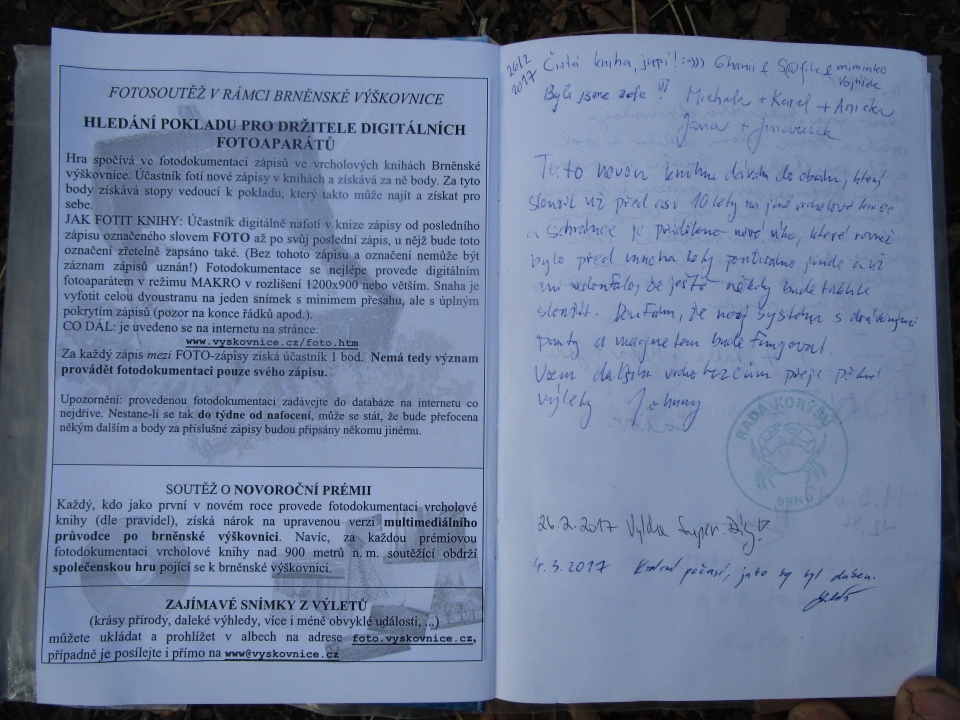 FOTOSOUTĚŽ V RÁMCI BRNĚNSKÉ VÝŠKOVNICE
HLEDÁNÍ POKLADU PRO DRŽITELE DIGITÁLNÍCH
FOTOAPARÁTŮ
Hra spočívá ve fotodokumentaci zápisů ve vrcholových knihách Brněnské
výškovnice. Účastník fotí nové zápisy v knihách a získává za ně body. Za tyto
body získává stopy vedoucí k pokladu, který takto může najít a získat pro
sebe.
JAK FOTIT KNIHY: Účastník digitálně nafotí v knize zápisy od posledního
zápisu označeného slovem FOTO až po svůj poslední zápis, u nějž bude toto
označení zřetelně zapsáno také. (Bez tohoto zápisu a označení nemůže být
záznam zápisů uznán!) Fotodokumentace se nejlépe provede digitálním
fotoaparátem v režimu MAKRO v rozlišení 1200x900 nebo větším. Snaha je
vyfotit celou dvoustranu na jeden snímek s minimem přesahu, ale s úplným
pokrytím zápisů (pozor na konce řádků apod.).
CO DÁL: je uvedeno se na internetu na stránce:
www.vyskovnice.cz/foto.htm
Za každý zápis mezi FOTO-zápisy získá účastník 1 bod. Nemá tedy význam
provádět fotodokumentaci pouze svého zápisu.
Upozornění: provedenou fotodokumentaci zadávejte do databáze na internetu co
nejdříve. Nestane-li se tak do týdne od nafocení, může se stát, že bude přefocena
někým dalším a body za příslušné zápisy budou připsány někomu jinému.
SOUTĚŽ O NOVOROČNÍ PRÉMII
Každý, kdo jako první v novém roce provede fotodokumentaci vrcholové
knihy (dle pravidel), získá nárok na upravenou verzi multimediálního
průvodce po brněnské výškovnici. Navíc, za každou prémiovou
fotodokumentaci vrcholové knihy nad 900 metrů n. m. soutěžící obdrží
společenskou hru pojící se k brněnské výškovnici.
ZAJÍMAVÉ SNÍMKY Z VÝLETŮ
(krásy přírody, daleké výhledy, více i méně obvyklé události, ...)
můžete ukládat a prohlížet v albech na adrese foto.vyskovnice.cz,
případně je posílejte i přímo na www@vyskovnice.cz
2017 Čistá kniha, jupí! :-))) Ghanii & S@fik & miminko
Vojtíšek
Byli jsme zde !! Michala + Karel + Anička
Jana +
Tuto novou knihu dávám do obalu, který
sloužil už před asi 10 lety na jiné vrcholové knize
a schránce je přiděleno nové víko, které rovněž
bylo před mnoha lety používáno jinde a už
ani nedoufalo, že ještě někdy bude takhle
sloužit. Doufám, že nový systém s drátěnými
panty a magnetem bude fungovat.
Všem dalším vrcholezcům přeje pěkné
výlety Johnny
RADA KORÝŠŮ
BRNO
26.2.2017
4.3.2017 počasí, jako by byl duben.